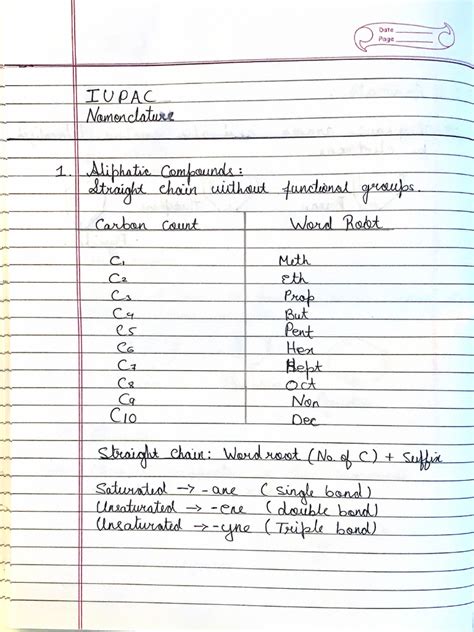 Date
Page
IUPAC
Nomenclature
1. Aliphatic Compounds:
Straight chain without functional groups.
Carbon Count Word Root
C1 Meth
C2 Eth
C3 Prop
C4 But
C5 Pent
C6 Hex
C7 Hept
C8 Oct
C9 Non
C10 Dec
Straight chain: Word root (No. of C) + Suffix
Saturated → -ane (single bond)
Unsaturated → -ene (double bond)
Unsaturated → -yne (Triple bond)